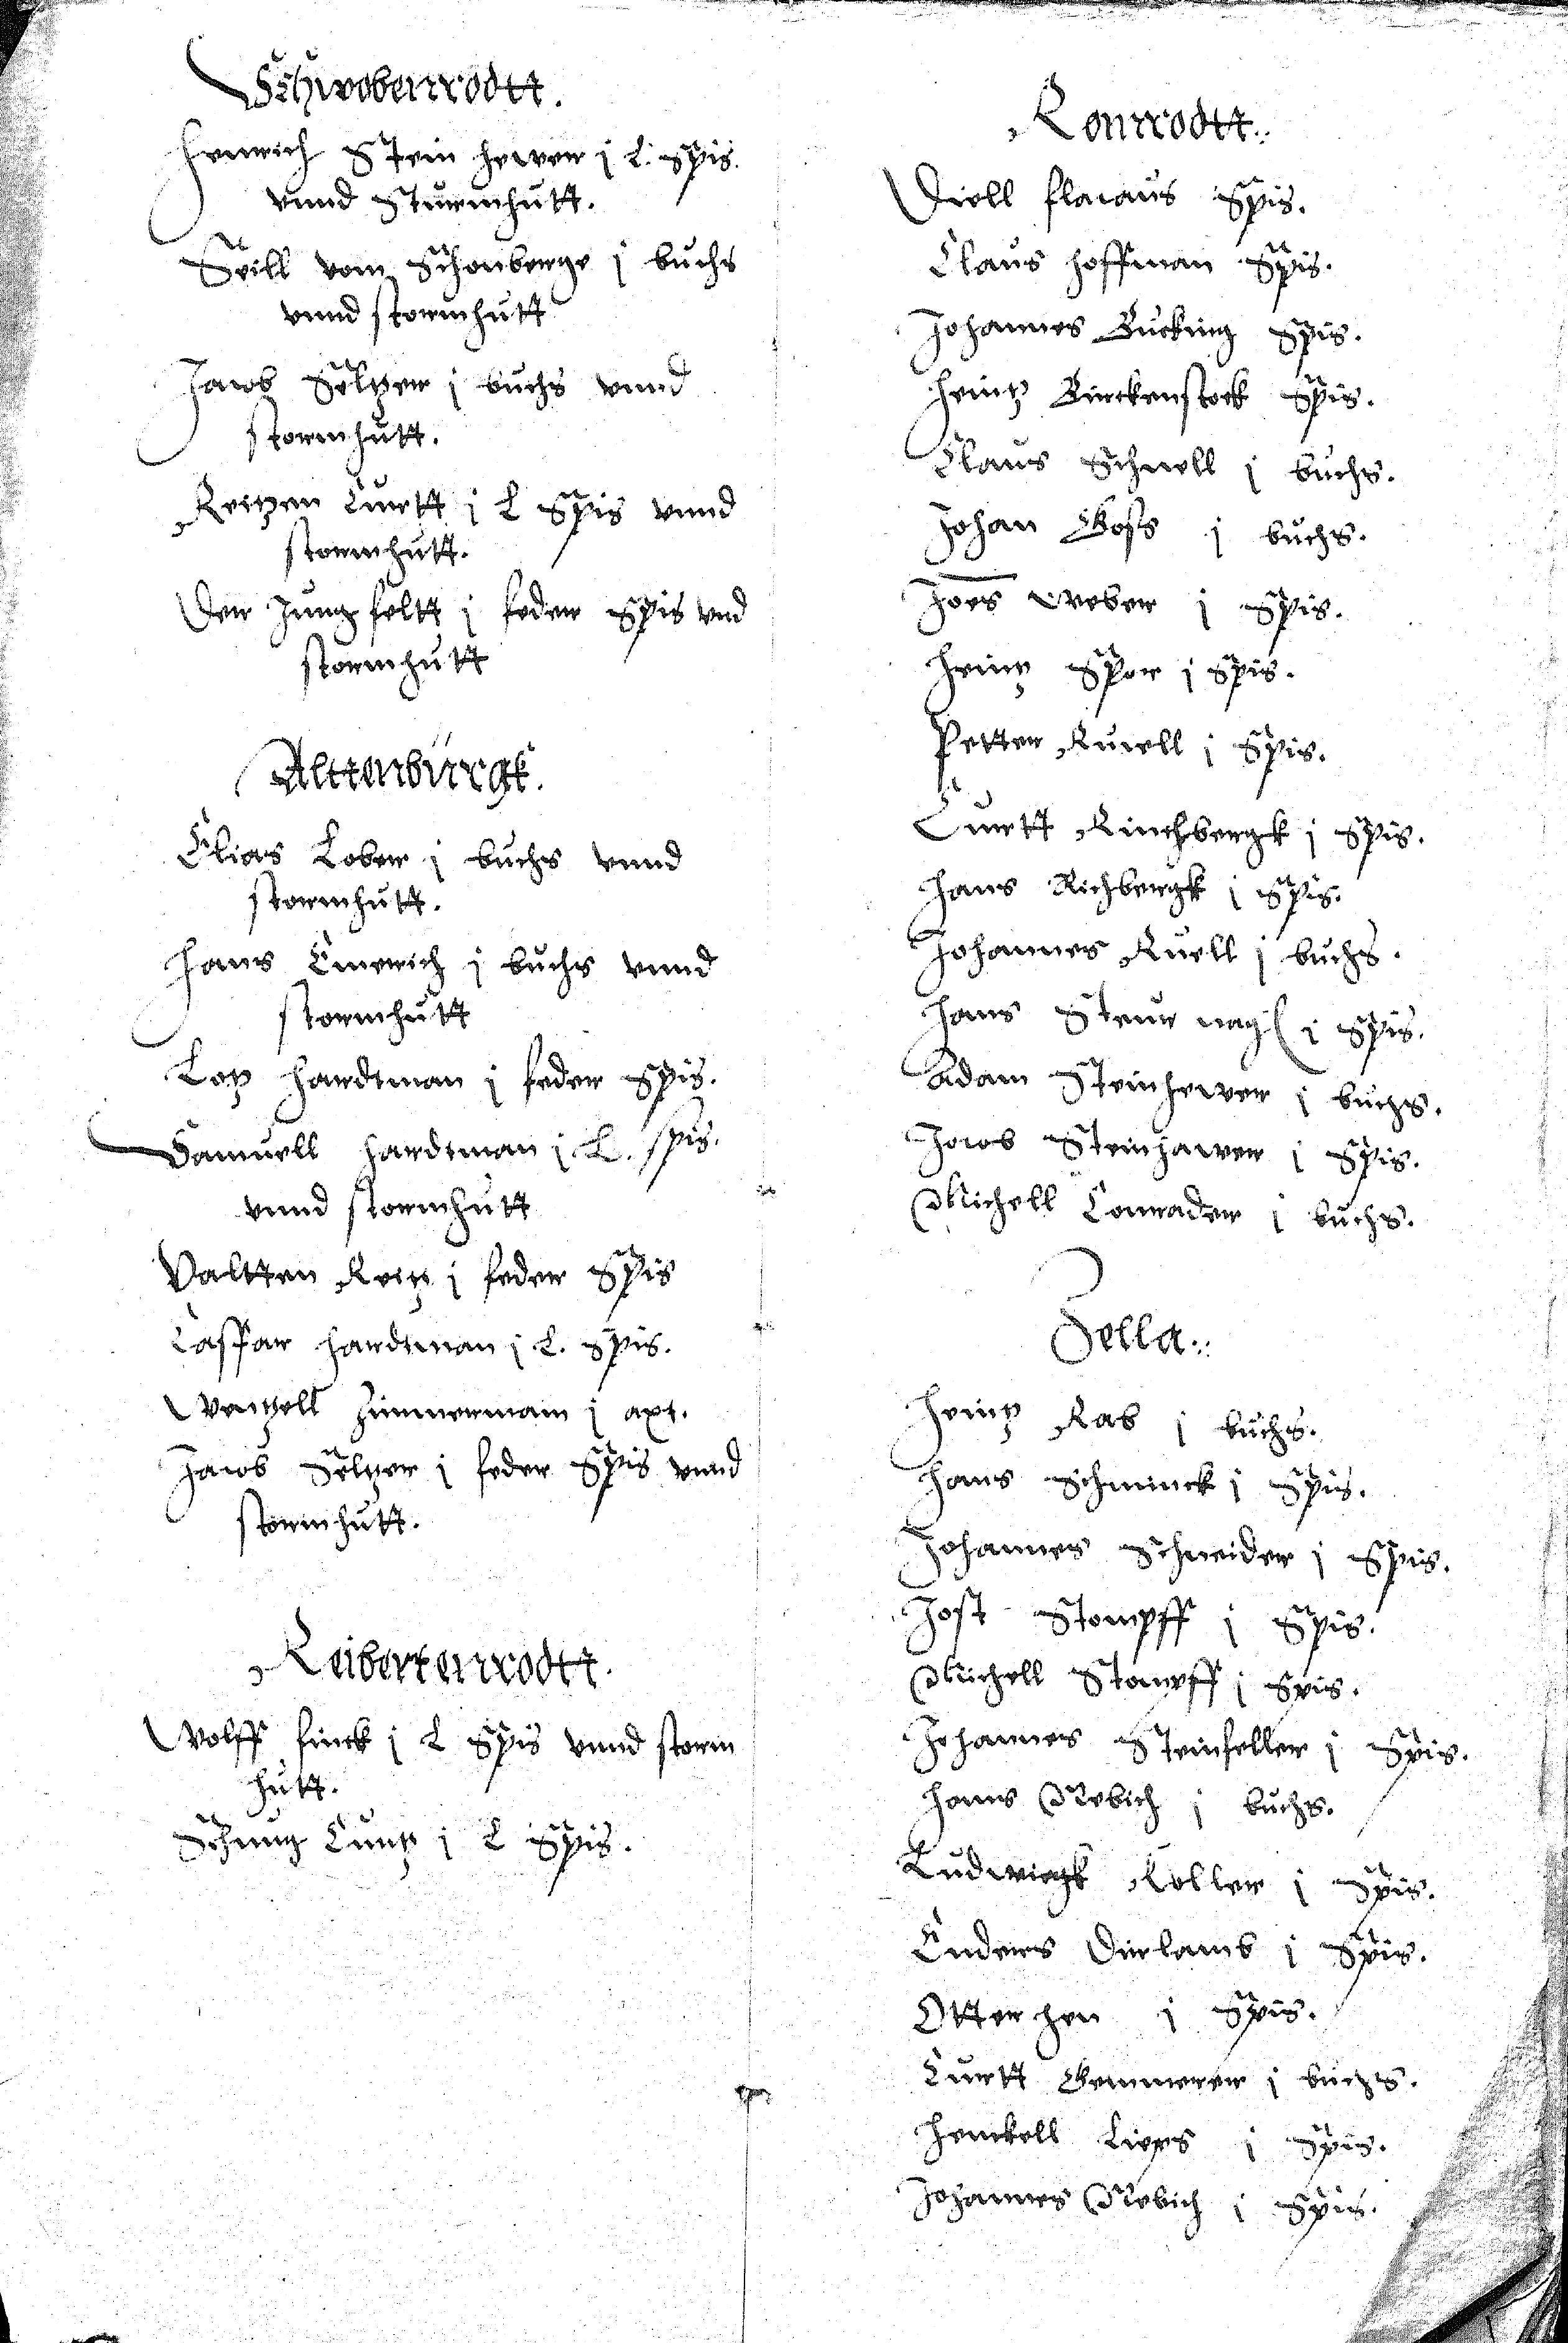 Schwobenrodtt.
Henrich Stein hewer j L. Spis.
vnnd Sturmhutt.
Seill vom Schonberge j buchs
vnnd stormhutt
Jacob Seltzer j buchs vnnd
stormhutt.
Reitzen Curtt j L Spis vnnd
stormhutt.
Der Jung feltt j feder Spis vnd
stormhutt
Alttenburgk.
Elias Lober j buchs vnnd
stormhutt.
Hans Emerich j buchs vnnd
stormhutt
Lotz Hardtman j feder Spis.
Samuell Hardtman j L. spis.
vnnd stormhutt
Valtten Reitz j feder Spis
Caspar Hardtman j L. Spis.
Wentzell Zimmermain j axt.
Jacob Seltzer j feder Spis vnnd
stormhutt.
Reibertenrodtt.
Wolff finck j L Spis vnnd storm
hutt.
Schung Cuntz j L Spis.
Romrodtt.
Diell Spis.
Claus Hoffman Spis.
Johannes Bucking Spis.
Heintz Birckenstock Spis.
Claus Schnell j buchs.
Johan Goss j buchs.
Joes Weber j Spis.
Heintz Spor j Spis.
Petter Ruell j Spis.
Curtt Richbergk j Spis.
Hans Richbergk j Spis.
Johannes Ruell j buchs.
Hans Steur nagl j Spis.
Adam Steinhewer j buchs.
Jacob Steinhawer j Spis.
Michell Conrader j buchs.
Zella.
Heintz Rab j buchs.
Hans Schminck j Spis.
Johannes Schneider j Spis.
Jost Stompff j Spis.
Michell Stompff j Spis.
Johannes Steinfeller j Spis.
Hans Rebich j buchs.
Ludwigk Koller j Spis.
Enders Dirlamb j Spis.
Otter hen j Spis.
Curtt Gemmerer j buchs.
Henckell Lips j Spis.
Johannes Rebich j Spis.